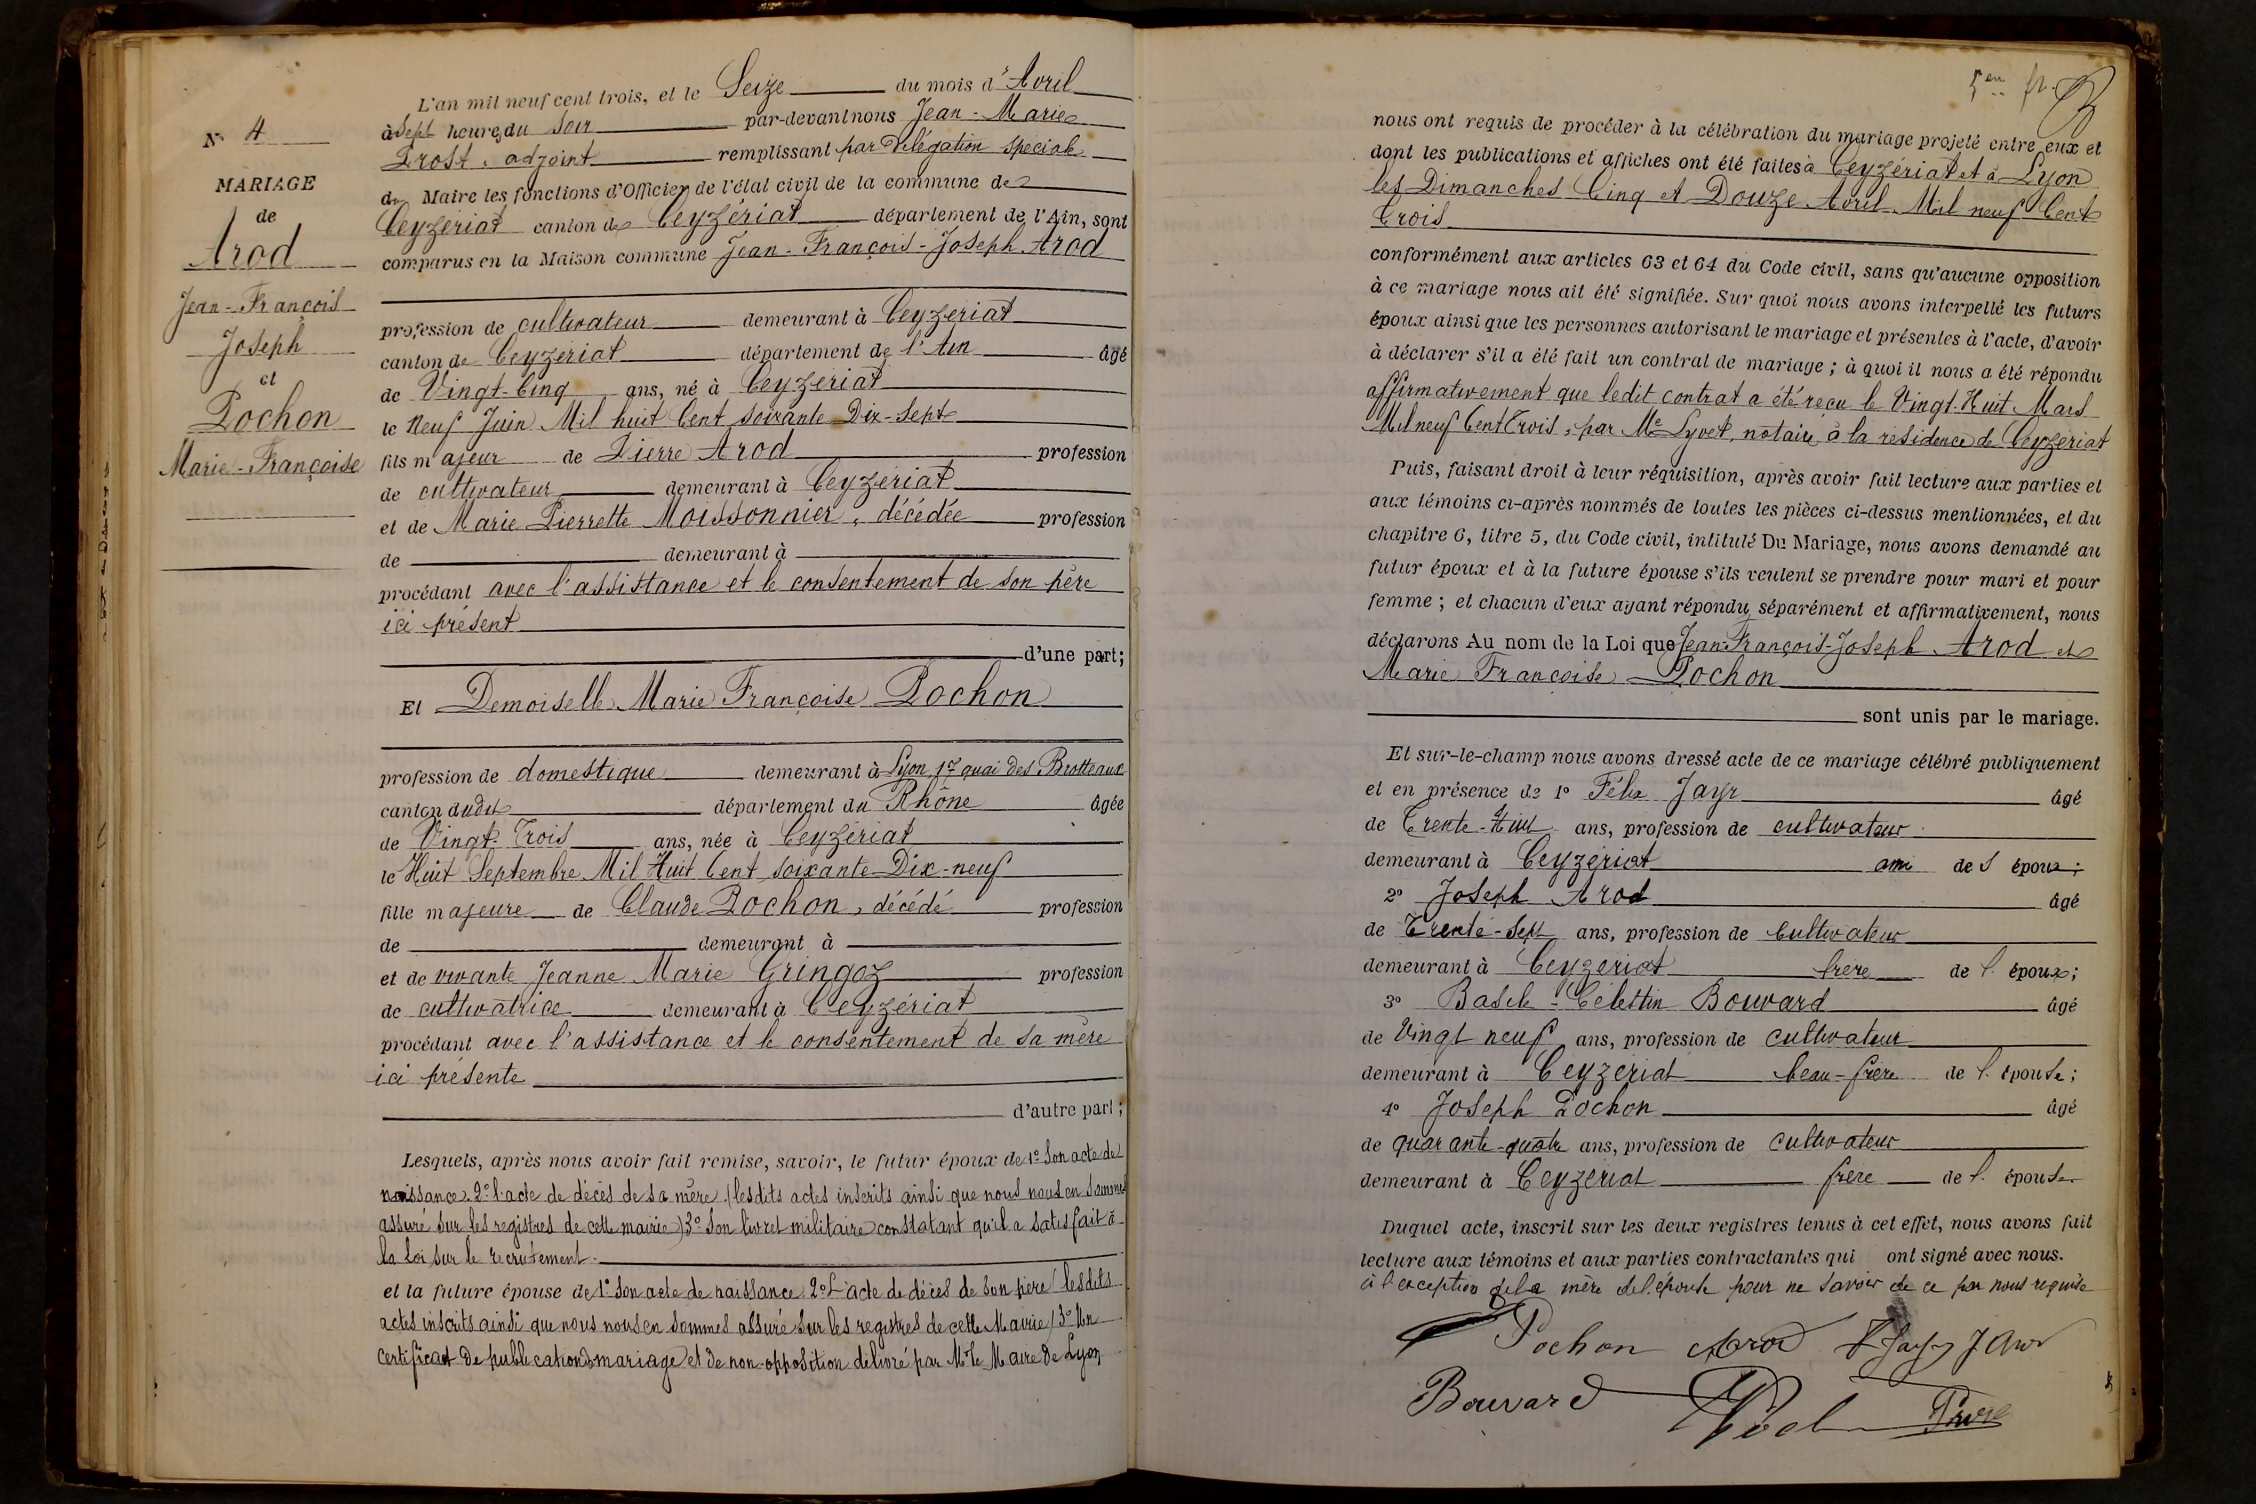 N° 4
MARIAGE
de
Arod
Jean-François
Joseph
et
Pochon
Marie-Françoise
L'an mil neuf cent trois, et le Seize du mois d'Avril
à Sept heures du Soir par-devant nous Jean-Marie
Prost, adjoint remplissant par Délégation spéciale
du Maire les fonctions d'Officier de l'état civil de la commune de
Ceyzériat canton de Ceyzériat département de l'Ain, sont
comparus en la Maison commune Jean-François-Joseph Arod
profession de cultivateur demeurant à Ceyzeriat
canton de Ceyzeriat département de l'Ain âgé
de Vingt-Cinq ans, né à Ceyzeriat
le Neuf Juin Mil huit Cent soixante Dix-Sept
fils majeur de Pierre Arod profession
de cultivateur demeurant à Ceyzeriat
et de Marie Pierrette Moissonnier, décédée profession
de demeurant à
procédant avec l'assistance et le consentement de son père
ici présent
d'une part;
Et Demoiselle Marie Françoise Pochon
profession de domestique demeurant à Lyon, 17 quai des Brotteaux
canton dudit département du Rhône âgée
de Vingt-Trois ans, née à Ceyzériat
le Huit Septembre Mil Huit Cent soixante-Dix-neuf
fille majeure de Claude Pochon, décédé profession
de demeurant à
et de vivante Jeanne Marie Gringoz profession
de cultivatrice demeurant à Ceyzériat
procédant avec l'assistance et le consentement de sa mère
ici présente
d'autre part;
Lesquels, après nous avoir fait remise, savoir, le futur époux de 1° Son acte de
naissance. 2° l'acte de décès de sa mère (lesdits actes inscrits ainsi que nous nous en sommes
assuré sur les registres de cette mairie) 3° Son livret militaire constatant qu'il a satisfait à
la loi sur le recrutement.
et la future épouse de 1° Son acte de naissance. 2° L'acte de décès de son père (lesdits
actes inscrits ainsi que nous nous en sommes assuré sur les registres de cette Mairie) 3° Un
certificat de publication de mariage et de non-opposition délivré par Mr le Maire de Lyon
nous ont requis de procéder à la célébration du mariage projeté entre eux et
dont les publications et affiches ont été faites à Ceyzériat et à Lyon
les Dimanches Cinq et Douze Avril Mil neuf Cent
Trois
conformément aux articles 63 et 64 du Code civil, sans qu'aucune opposition
à ce mariage nous ait été signifiée. Sur quoi nous avons interpellé les futurs
époux ainsi que les personnes autorisant le mariage et présentes à l'acte, d'avoir
à déclarer s'il a été fait un contrat de mariage; à quoi il nous a été répondu
affirmativement que ledit contrat a été reçu le Vingt-Huit Mars
Mil neuf Cent Trois, par Me Lyvet, notaire à la résidence de Ceyzeriat
Puis, faisant droit à leur réquisition, après avoir fait lecture aux parties et
aux témoins ci-après nommés de toutes les pièces ci-dessus mentionnées, et du
chapitre 6, titre 5, du Code civil, intitulé Du Mariage, nous avons demandé au
futur époux et à la future épouse s'ils veulent se prendre pour mari et pour
femme; et chacun d'eux ayant répondu séparément et affirmativement, nous
déclarons Au nom de la Loi que Jean-François-Joseph Arod et
Marie Françoise Pochon
sont unis par le mariage.
Et sur-le-champ nous avons dressé acte de ce mariage célébré publiquement
et en présence de 1° Félix Jayr âgé
de Trente-Huit ans, profession de cultivateur
demeurant à Ceyzériat ami des époux;
2° Joseph Arod âgé
de Trente-Sept ans, profession de Cultivateur
demeurant à Ceyzeriat frère de l'époux;
3° Basile-Célestin Bouvard âgé
de Vingt neuf ans, profession de cultivateur
demeurant à Ceyzériat beau-frère de l'épouse;
4° Joseph Pochon âgé
de quarante-quatre ans, profession de cultivateur
demeurant à Ceyzériat frère de l'épouse
Duquel acte, inscrit sur les deux registres tenus à cet effet, nous avons fait
lecture aux témoins et aux parties contractantes qui ont signé avec nous.
à l'exception de la mère de l'épouse pour ne savoir de ce par nous requise
Pochon Arod
Bouvard